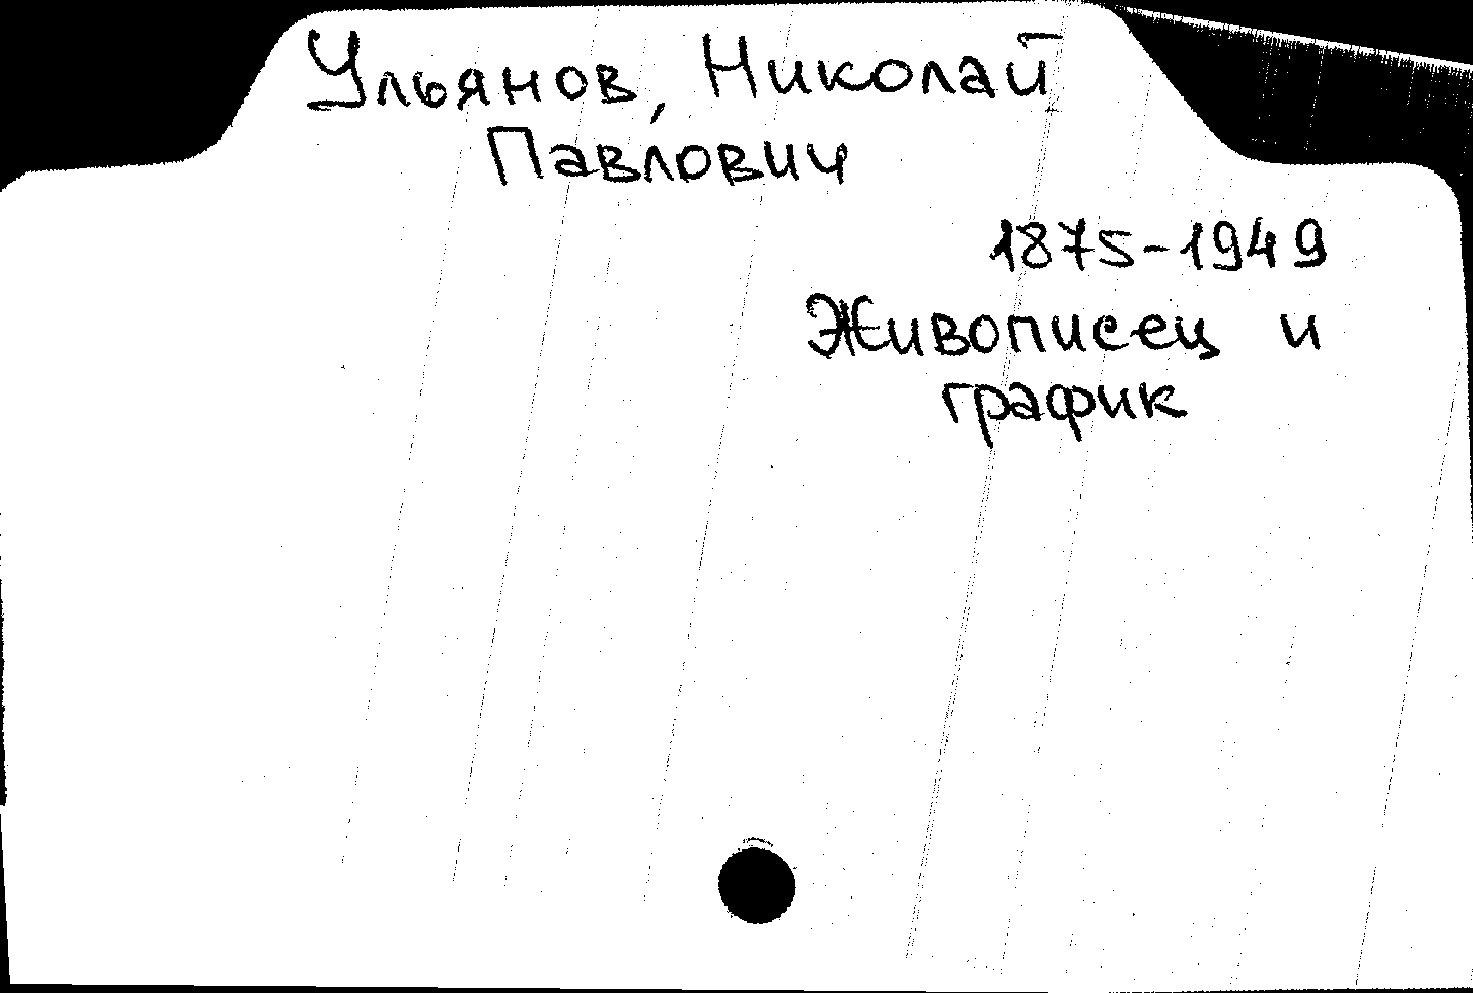 Ульянов, Николай
Павлович
1875-1949
Живописец и
график